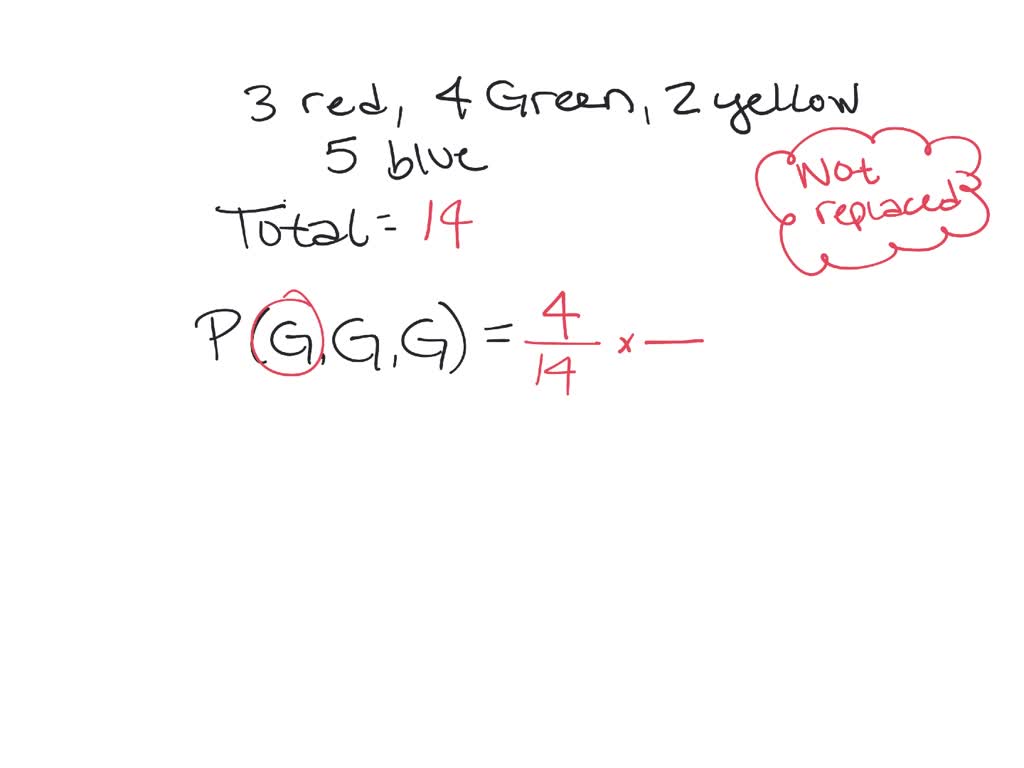 3 red, 4 Green, 2 yellow
5 blue
Not
replaced
Total = 14
P(G, G, G) = 4/14 x —